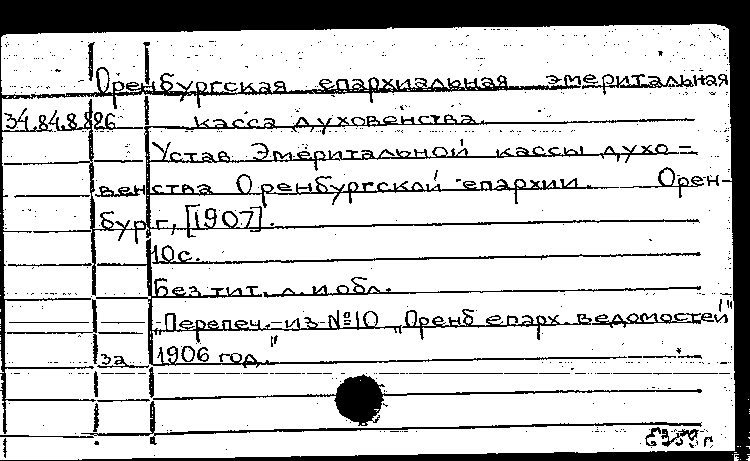 Оренбургская епархиальная эмеритальная
34.84.8.826 касса духовенства.
Устав Эмеритальной кассы духо=
венства Оренбургской епархии. Орен-
бург, [1907].
10с.
Без тит. л. и обл.
„Перепеч. из №10 „Оренб епарх. ведомостей"
за 1906 год."